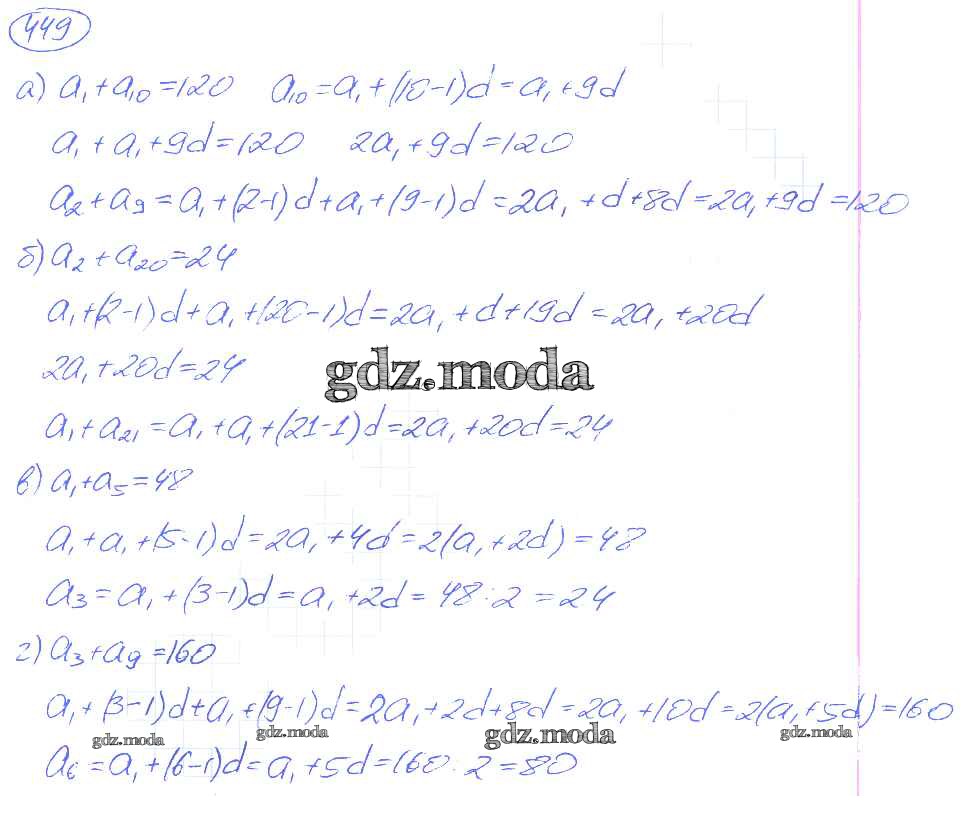 449
а) a₁+a₁₀=120 a₁₀=a₁+(10-1)d=a₁+9d
a₁+a₁+9d=120 2a₁+9d=120
a₂+a₉=a₁+(2-1)d+a₁+(9-1)d=2a₁+d+8d=2a₁+9d=120
б) a₂+a₂₀=24
a₁+(2-1)d+a₁+(20-1)d=2a₁+d+19d=2a₁+20d
2a₁+20d=24
gdz.moda
a₁+a₂₁=a₁+a₁+(21-1)d=2a₁+20d=24
в) a₁+a₅=48
a₁+a₁+(5-1)d=2a₁+4d=2(a₁+2d)=48
a₃=a₁+(3-1)d=a₁+2d=48:2=24
г) a₃+a₉=160
a₁+(3-1)d+a₁+(9-1)d=2a₁+2d+8d=2a₁+10d=2(a₁+5d)=160
gdz.moda gdz.moda gdz.moda gdz.moda
a₆=a₁+(6-1)d=a₁+5d=160:2=80